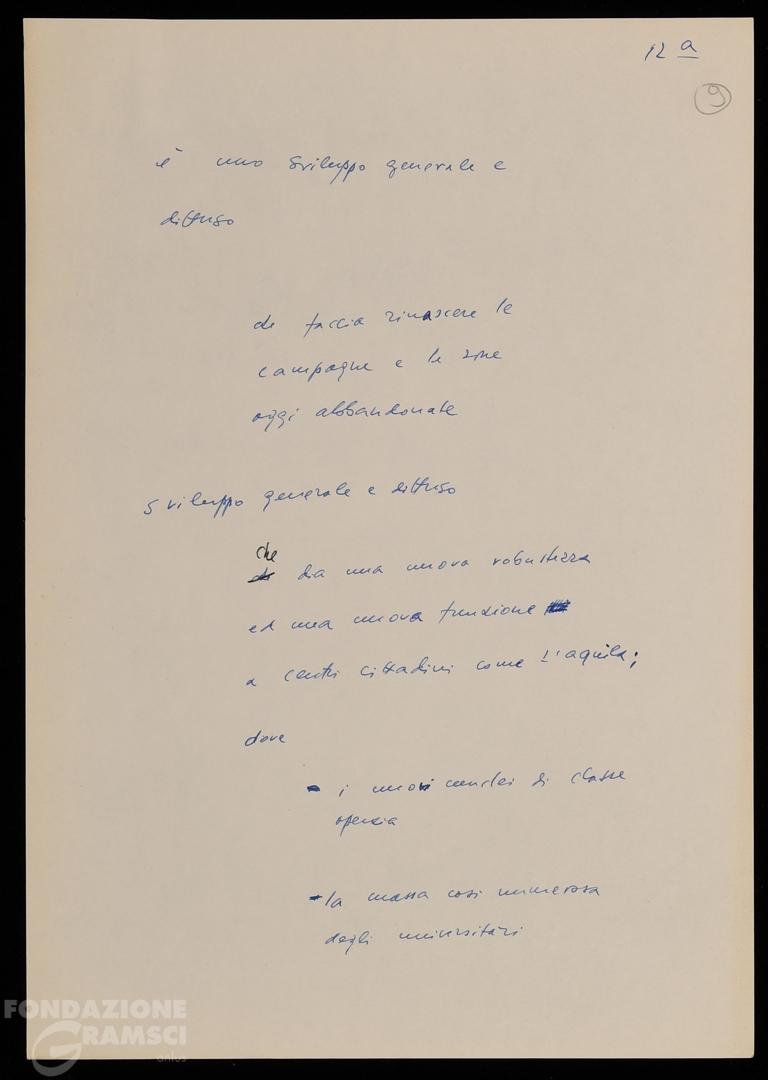 12 a
9
è uno sviluppo generale e
diffuso
che faccia rinascere le
campagne e le zone
oggi abbandonate
Sviluppo generale e diffuso
che
dia una nuova robustezza
ed una nuova funzione
a centri cittadini come L'aquila;
dove
- i nuovi nuclei di classe
operaia
- la massa così numerosa
degli universitari
FONDAZIONE
GRAMSCI
onlus